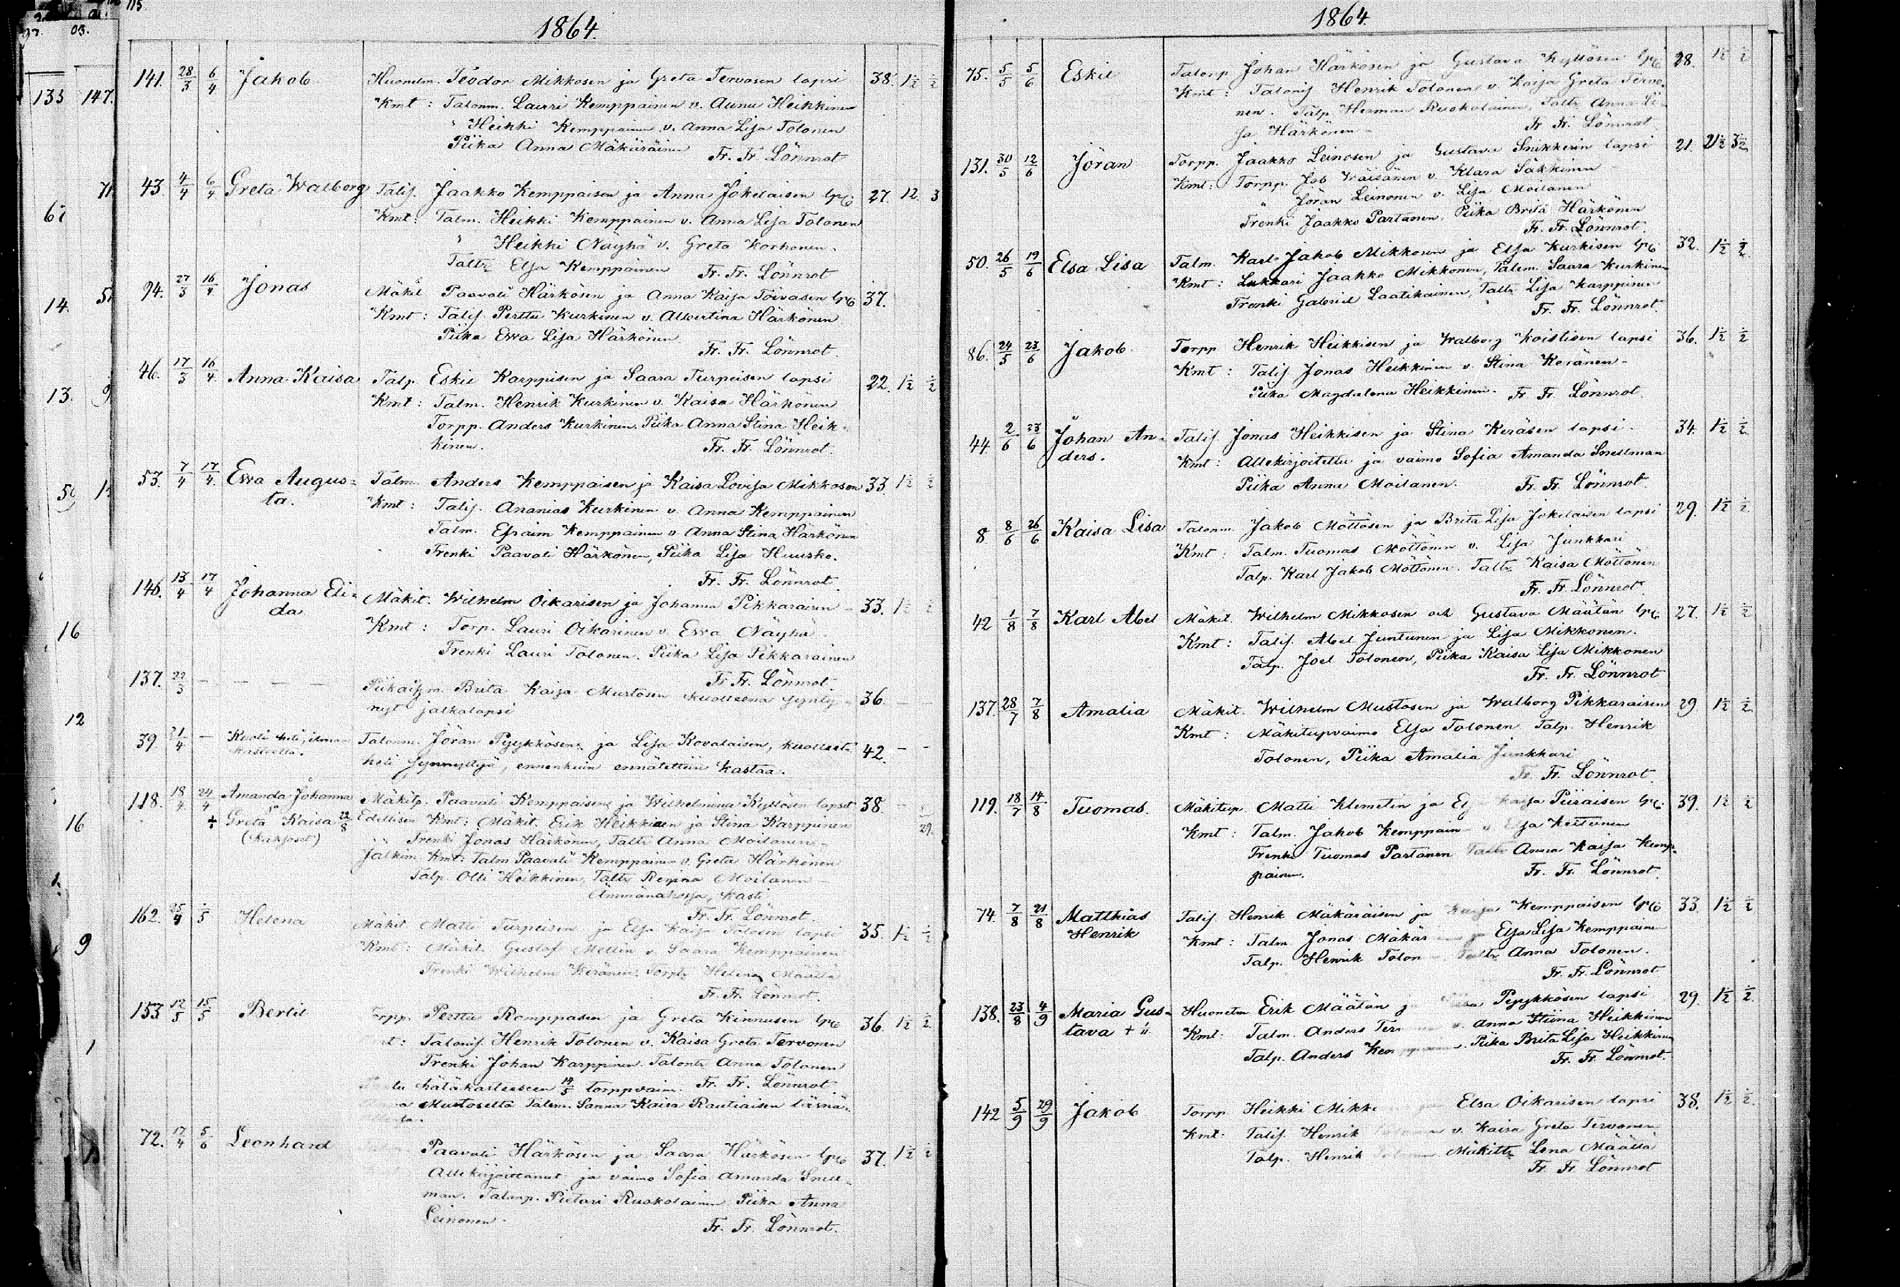 1864.
141. 28/3 6/4 Jakob Huonelm. Teodor Mikkosen ja Greta Tervosen lapsi 38. 1½ ½
Kmt: Talonm. Lauri Kemppainen v. Aunu Heikkinen
" Heikki Kemppainen v. Anna Lisa Tolonen
Piika Anna Mäkäräinen Fr. Fr. Lönnrot
43. 4/4 6/4 Greta Walborg Talif. Jaakko Kemppaisen ja Anna Jokelaisen lapsi 27. 12. 3
Kmt: Talm. Heikki Kemppainen v. Anna Lisa Tolonen
" Heikki Näyhä v. Greta Korhonen.
Taltr Elsa Kemppainen Fr. Fr. Lönnrot
94. 27/3 16/4 Jonas Mäkit Paavali Härkösen ja Anna Kaisa Toivasen lapsi 37.
Kmt: Talif Perttu Kurkinen v. Albertina Härkönen
Piika Ewa Lisa Härkönen
Fr. Fr. Lönnrot.
46. 17/3 16/4 Anna Kaisa Talp. Eskil Karppisen ja Saara Turpeisen lapsi 22. 1½ ½
Kmt: Talm. Henrik Kurkinen v. Kaisa Härkönen
Torpp. Anders Kurkinen. Piika Anna Stina Heik-
kinen. Fr. Fr. Lönnrot.
53. 7/4 17/4 Ewa Augus= Talm. Anders Kemppaisen ja Kaisa Lovisa Mikkosen 33. 1½ ½
ta. Kmt: Talif. Ananias Kurkinen v. Anna Kemppainen
Talm. Efraim Kemppainen v. Anna Stina Härkönen
Trenki Paavali Härkönen, Piika Lisa Huusko.
Fr. Fr. Lönnrot
146. 13/4 17/4 Johanna Eli- Mäkit. Wilhelm Oikarisen ja Johanna Pikkarainen 33. 1½ ½
da. Kmt: Torp. Lauri Oikarinen v. Ewa Näyhä.
Trenki Lauri Tolonen. Piika Lisa Pikkarainen
Fr. Fr. Lönnrot
137. 22/3 — — — — Brita Kaisa Murtosen kuolleena synty- 36. — —
nyt jalkalapsi
39. 21/4 — Kuoli heti, ilman Talonm. Jöran Pyykkösen ja Lisa Kovalaisen, kuollut 42. — —
kastetta. heti synnyttyä, ennenkuin ennätettiin kastaa.
118. 18/4 24/4 Amanda Johanna Mäkitp. Paavali Kemppaisen ja Wilhelmina Kyllösen lapset 38.
Greta Kaisa 22/8 Edellisen Kmt: Mäkit. Erik Heikkinen ja Stina Karppinen
Trenki Jonas Härkönen, Taltr Anna Moilanen.
Jälkim. Kmt: Talm Paavali Kemppainen v. Greta Härkönen
Talp. Olli Heikkinen, Taltr Regina Moilanen
Fr. Fr. Lönnrot.
162. 25/4 1/5 Helena Mäkit Matti Turpeisen ja Elsa Kaisa Tolosen lapsi 35. 1½ ½
Kmt: Mäkit. Gustaf Mellin v. Saara Kemppainen
Trenki Wilhelm Keränen. Torptr Helena Määttä
Fr. Fr. Lönnrot.
153. 12/5 15/5 Bertil Torpp. Perttu Romppasen ja Greta Kinnusen lapsi 36. 1½ ½
Kmt: Talonif. Henrik Tolonen v. Kaisa Greta Tervonen
Trenki Johan Karppinen. Talontr Anna Tolonen
hätäkasteeseen 14/5 torppvaim. Fr. Fr. Lönnrot
Mustoselta Talem. Sanna Kaisa Rautiaisen läsnä-
72. 17/4 5/6 Leonhard Paavali Härkösen ja Saara Härkösen lapsi 37. 1½ ½
Allekirjoittanut ja vaimo Sofia Amanda Snell-
man. Talonp. Pietari Ruokolainen Piika Anna
Leinonen. Fr. Fr. Lönnrot.
1864.
75. 5/5 5/6 Eskil Talonp Johan Härkösen ja Gustava Kyllösen lapsi 28. 1½ ½
Kmt: Talonif Henrik Tolonen v. Kaisa Greta Tervo-
nen. Talp Herman Ruokolainen, Taltr Anna Li-
sa Härkönen. Fr. Fr. Lönnrot
131. 30/5 12/6 Jöran Torpp. Jaakko Leinosen ja Gustava Snikkerin lapsi 21. 21½ 3½
Kmt: Torpp. Job Wäisänen v. Klara Säkkinen
" Jöran Leinonen v. Lisa Moilanen
Trenki Jaakko Partanen. Piika Brita Härkönen
Fr. Fr. Lönnrot.
50. 26/5 19/6 Elsa Lisa Talm. Karl Jakob Mikkosen ja Elsa Kurkisen lapsi 32. 1½ ½
Kmt: Lukkari Jaakko Mikkonen, Talem. Saara Kurkinen
Trenki Gabriel Laatikainen, Taltr Lisa Karppinen
Fr. Fr. Lönnrot.
86. 24/5 23/6 Jakob Torpp Henrik Heikkisen ja Walborg Koistisen lapsi 36. 1½ ½
Kmt: Talif Jonas Heikkinen v. Stina Keränen.
Piika Magdalena Heikkinen. Fr. Fr. Lönnrot.
44 2/6 23/6 Johan An- Talif Jonas Heikkisen ja Stina Keräsen lapsi. 34. 1½ ½
ders. Kmt: Allekirjoitettu ja vaimo Sofia Amanda Snellman
Piika Anna Moilanen. Fr. Fr. Lönnrot
8. 8/6 26/6 Kaisa Lisa Talonm Jakob Möttösen ja Brita Lisa Jokelaisen lapsi 29. 1½ ½
Kmt: Talm. Tuomas Möttönen v. Lisa Junkkari
Talp. Karl Jakob Möttönen. Taltr Kaisa Möttönen
Fr. Fr. Lönnrot.
42 1/8 7/8 Karl Abel Mäkit. Wilhelm Mikkosen och Gustava Määtän lapsi 27. 1½ ½
Kmt: Talif. Abel Juntunen ja Lisa Mikkonen.
Talp. Joel Tolonen, Piika Kaisa Lisa Mikkonen
Fr. Fr. Lönnrot
137. 28/7 7/8 Amalia Mäkit. Wilhelm Mustosen ja Walborg Pikkaraisen 29. 1½ ½
Kmt: Mäkitupvaimo Elsa Tolonen Talp. Henrik
Tolonen, Piika Amalia Junkkari
Fr. Fr. Lönnrot.
119. 18/7 14/8 Tuomas. Mäkitup. Matti Klemetin ja Kaisa Piiraisen lapsi 39. 1½ ½
Kmt: Talm. Jakob Kemppain v. Elsa
Trenki Tuomas Partanen Taltr Anna Kaisa Kemp-
painen. Fr. Fr. Lönnrot.
74 7/8 21/8 Matthias Talif Henrik Mäkäräisen ja Kaisa Kemppaisen lapsi 33. 1½ ½
Henrik Kmt: Talm Jonas Mäkär Elsa Lisa Kemppainen
Talp. Henrik Tolon Taltr Anna Tolonen.
Fr. Fr. Lönnrot
138. 23/8 4/9 Maria Gus- Huonelm Erik Määtän ja Pyykkösen lapsi 29. 1½ ½
tava Kmt: Talm. Anders Ter v. Anna Stiina Heikkinen
Talp. Anders Kem Piika Brita Lisa Heikkinen
Fr. Fr. Lönnrot
142 5/9 29/9 Jakob Torpp Heikki Mikko Elsa Oikarisen lapsi 38. 1½ ½
Kmt: Talif. Henrik v. Kaisa Greta Tervonen
Talp. Henrik Mäkittr Lena Määttä
Fr. Fr. Lönnrot